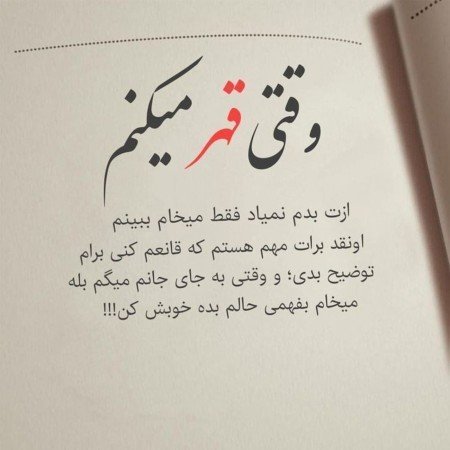 وقتی قهر میکنم
ازت بدم نمیاد فقط میخام ببینم
اونقد برات مهم هستم که قانعم کنی برام
توضیح بدی؛ و وقتی به جای جانم میگم بله
میخام بفهمی حالم بده خوبش کن!!!